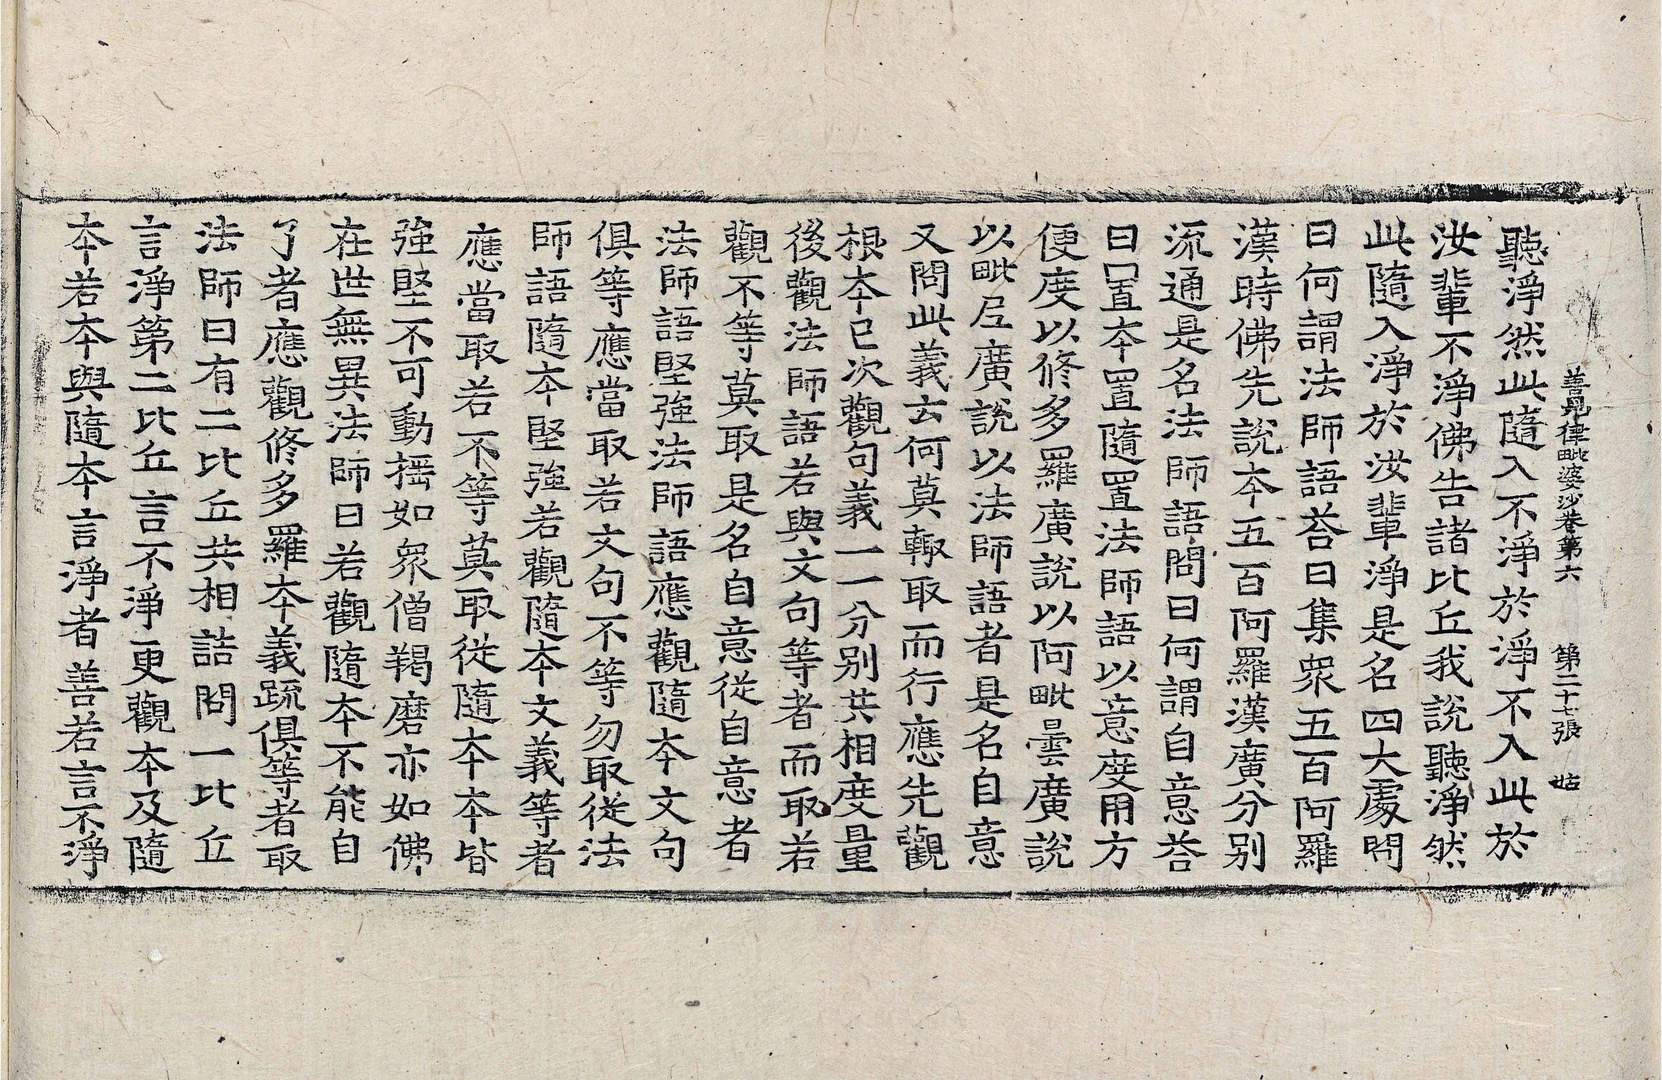 善見律毗婆沙卷第六 第二十七張 姑
聽淨然此隨入不淨於淨不入此於
汝輩不淨佛告諸比丘我說聽淨然
此隨入淨於汝輩淨是名四大處問
曰何謂法師語荅曰集衆五百阿羅
漢時佛先說本五百阿羅漢廣分別
流通是名法師語問曰何謂自意荅
曰置本置隨置法師語以意度用方
便度以修多羅廣說以阿毗曇廣說
以毗尼廣說以法師語者是名自意
又問此義云何莫輙取而行應先觀
根本已次觀句義一一分別共相度量
後觀法師語若與文句等者而取若
觀不等莫取是名自意從自意者
法師語堅強法師語應觀隨本文句
俱等應當取若文句不等勿取從法
師語隨本堅強若觀隨本文義等者
應當取若不等莫取從隨本本皆
強堅不可動揺如衆僧羯磨亦如佛
在世無異法師曰若觀隨本不能自
了者應觀修多羅本義疏俱等者取
法師曰有二比丘共相詰問一比丘
言淨第二比丘言不淨更觀本及隨
本若本與隨本言淨者善若言不淨